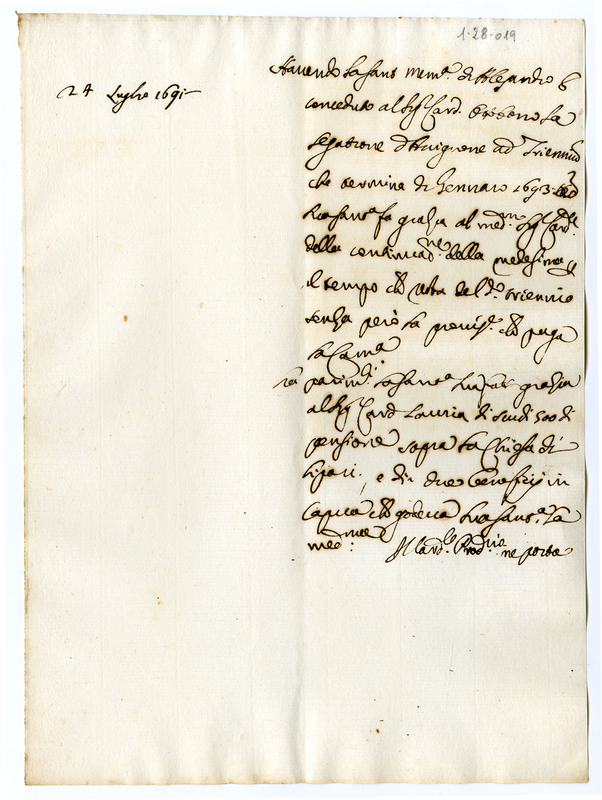 1-28-019
24 Luglio 1691
Havendo la san: mem.ᵃ di Alesandro 8
conceduto al Sig.ʳ Card. Ottoboni la
legatione d'Avignone ad Triennium
che termina di Gennaro 1693
sua sant.ᵃ fa gratia al med.ᵐᵒ Sig.ʳ Card.ˡᵉ
della continuat.ⁿᵉ della medesima
il tempo che resta del d.º triennio
senza però la provis.ᵉ che paga
la Cam.ᵃ
parim.ᵗⁱ sua sant.ᵃ gratia
al Sig.ʳ Card Lauria di scudi 500 di
pensione sopra la Chiesa di
Lipari, e di due Beneficij in
Capua che godeva sua sant.ᵃ la
med.ᵐᵃ
Il Card.ˡᵉ Prod.ʳⁱᵒ ne porta